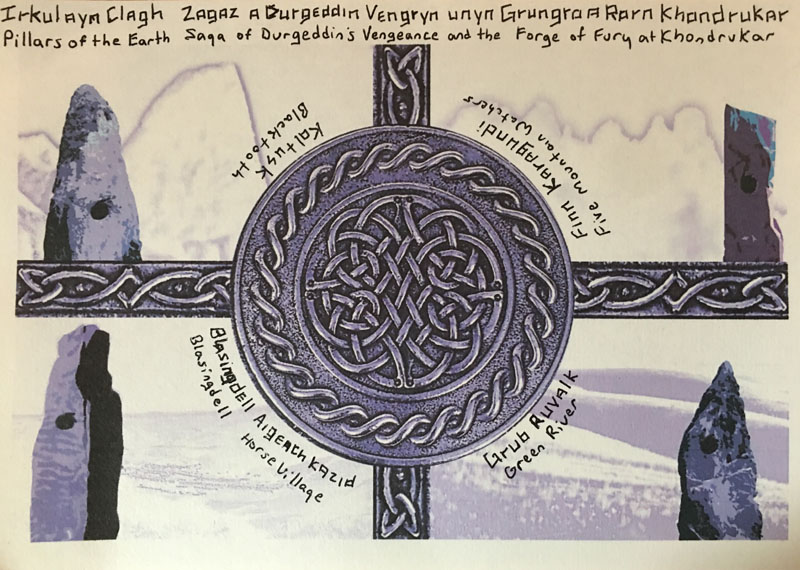 Irkulayn Clagh Zagaz a Durgeddin Vengryn unyn Grungron a Rorn Khondrukar
Pillars of the Earth Saga of Durgeddin's Vengeance and the Forge of Fury at Khondrukar
Kaltusk
Blacktooth
Finn Karagundi
Five Mountain Watchers
Blasingdell Aigeach Kazid
Blasingdell Horse Village
Grub Ruvalk
Green River